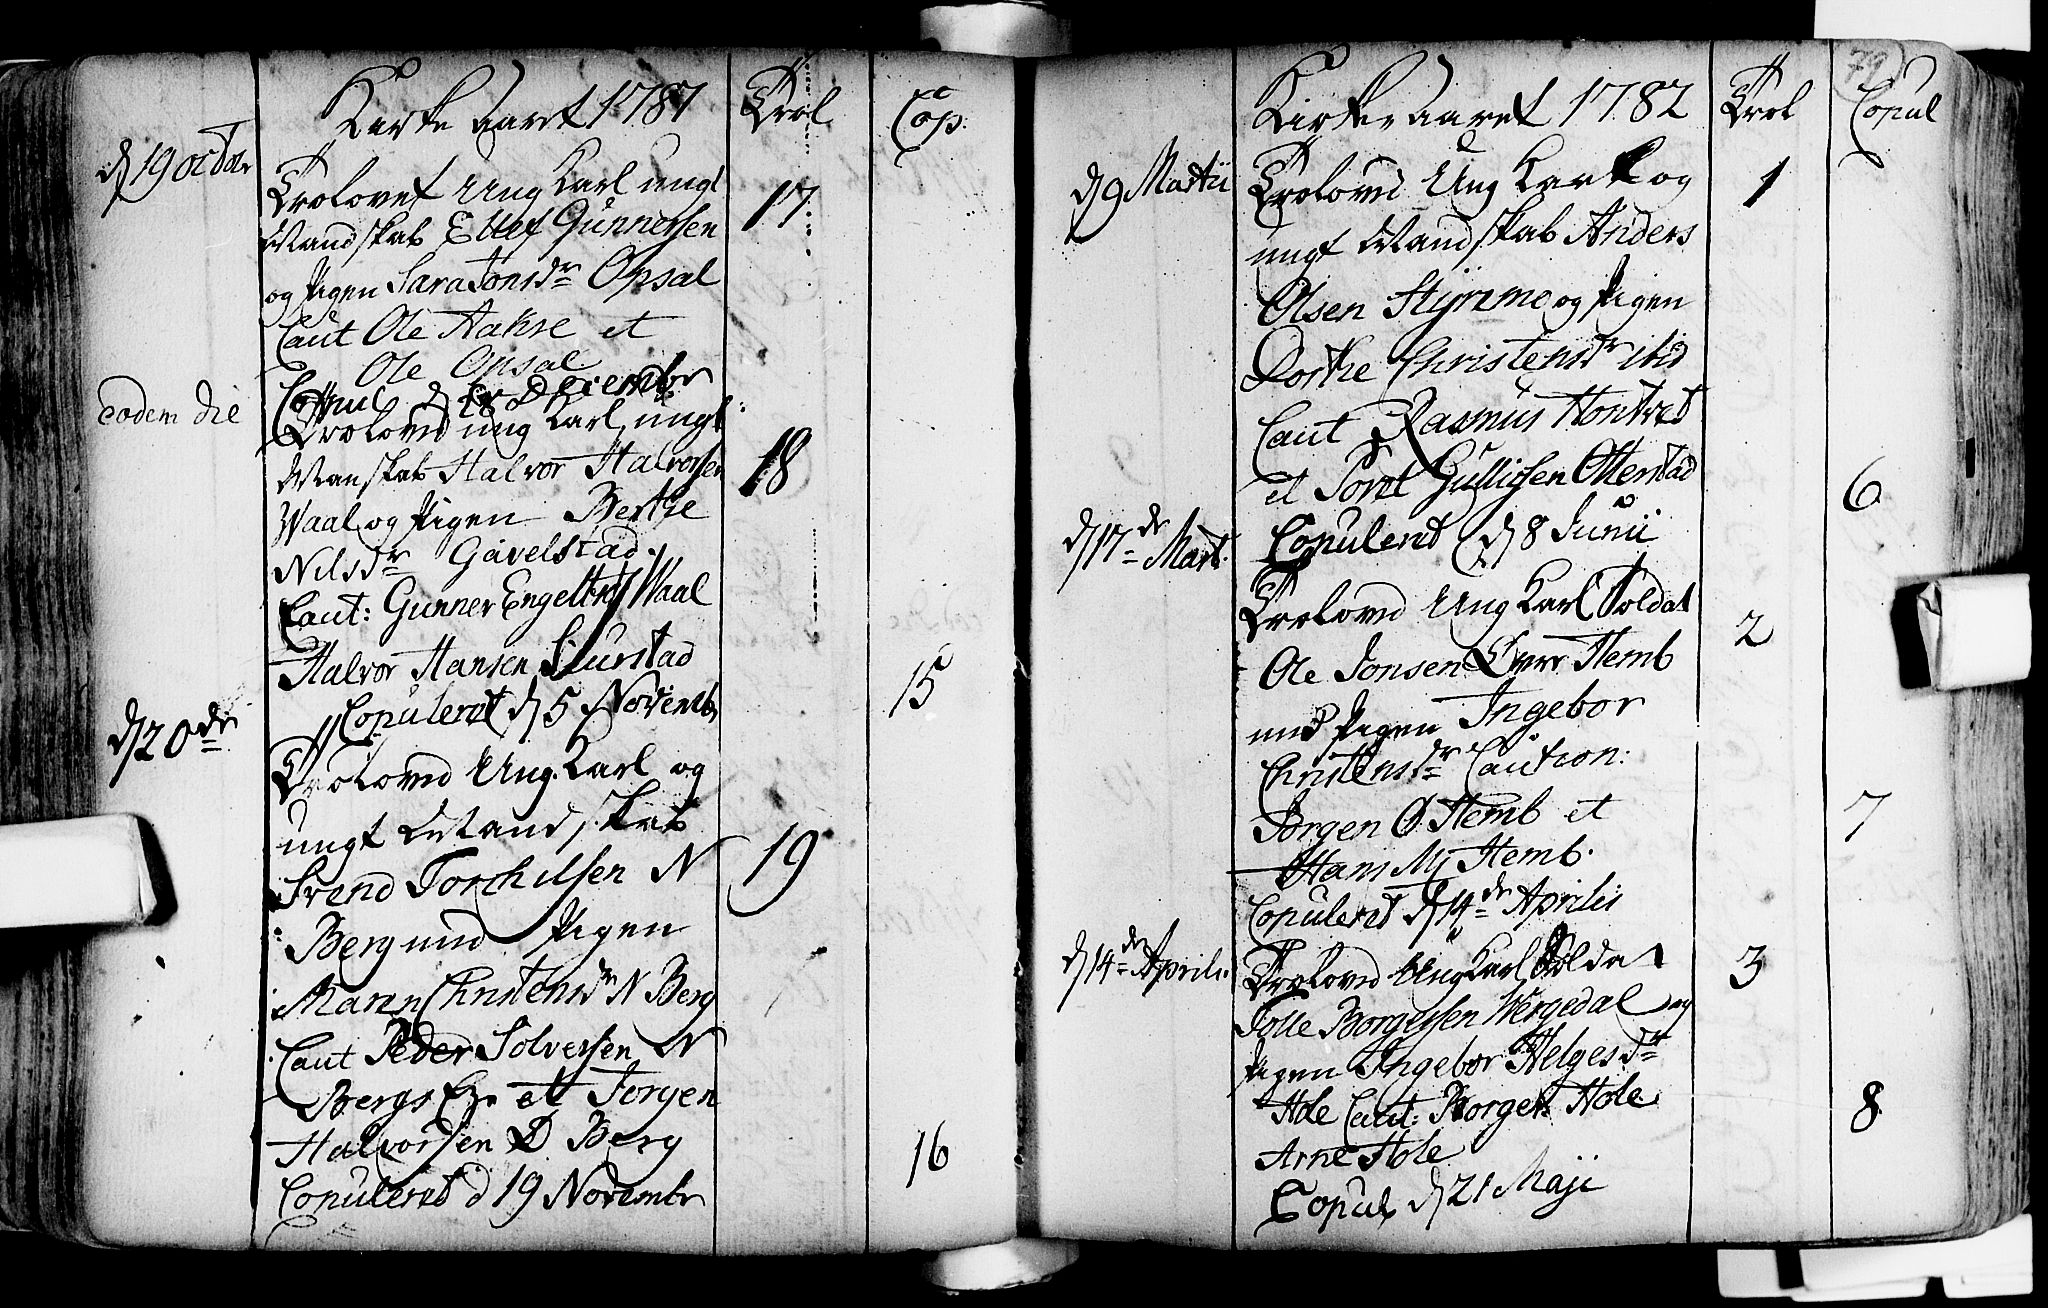 Kirke Aaret 1781
Trol
Cop.
d 19 octobr
Trolovet Ung Karl ungt
Mandskab Ellef Gunnersen
og Pigen Sara Jonsdr Opsal
Caut Ole Aakre et
Ole Opsal
Copul d Decembr
17
eodem die
Trolovd ung Karl, ungt
Manskab Halvor Halvorsen
Waal og Pigen Berthe
Nilsdr Gavelstad.
Caut: Gunner Engelbret Waal
Halvor Hansen
Copuleret d 5 Novembr
18
15
d 20de
Trolovd Ung Karl og
ungt Mandskab
Svend Torchilsen N
Berg med Pigen
Maren Christensdr N Berg
Caut Peder Solversen N
Bergs Ey. et Jorgen
Halvorsen Ø Berg
Copuleret d 19 Novembr
19
16
79
Kirke aaret 1782
Trol
Copul
d 9 Martii
Trolovd Ung Karl og
ungt Mandskab Anders
Olsen Styrmo og Pigen
Dorthe Christensdr ibid
Caut Rasmus Hontvet
et Sørel Gullichsen Otterstad
Copuleret d 8 Junii
1
6
d 17de Mart.
Trolovd Ung Karl Soldat
Ole Jonsen Øvre Hemb
med Pigen Ingebor
Christensdr Caution:
Jörgen Ø Hemb et
Hans M Hemb.
Copuleret d 14de Aprilis
2
7
d 14de Aprilis
Trolovd Ung Karl Soldat
Tolle Borgersen Wergedal og
Pigen Ingebor Helgesdr
Hole Caut: Borger Hole
Arne Hole
Copul d 21 Maji
3
8